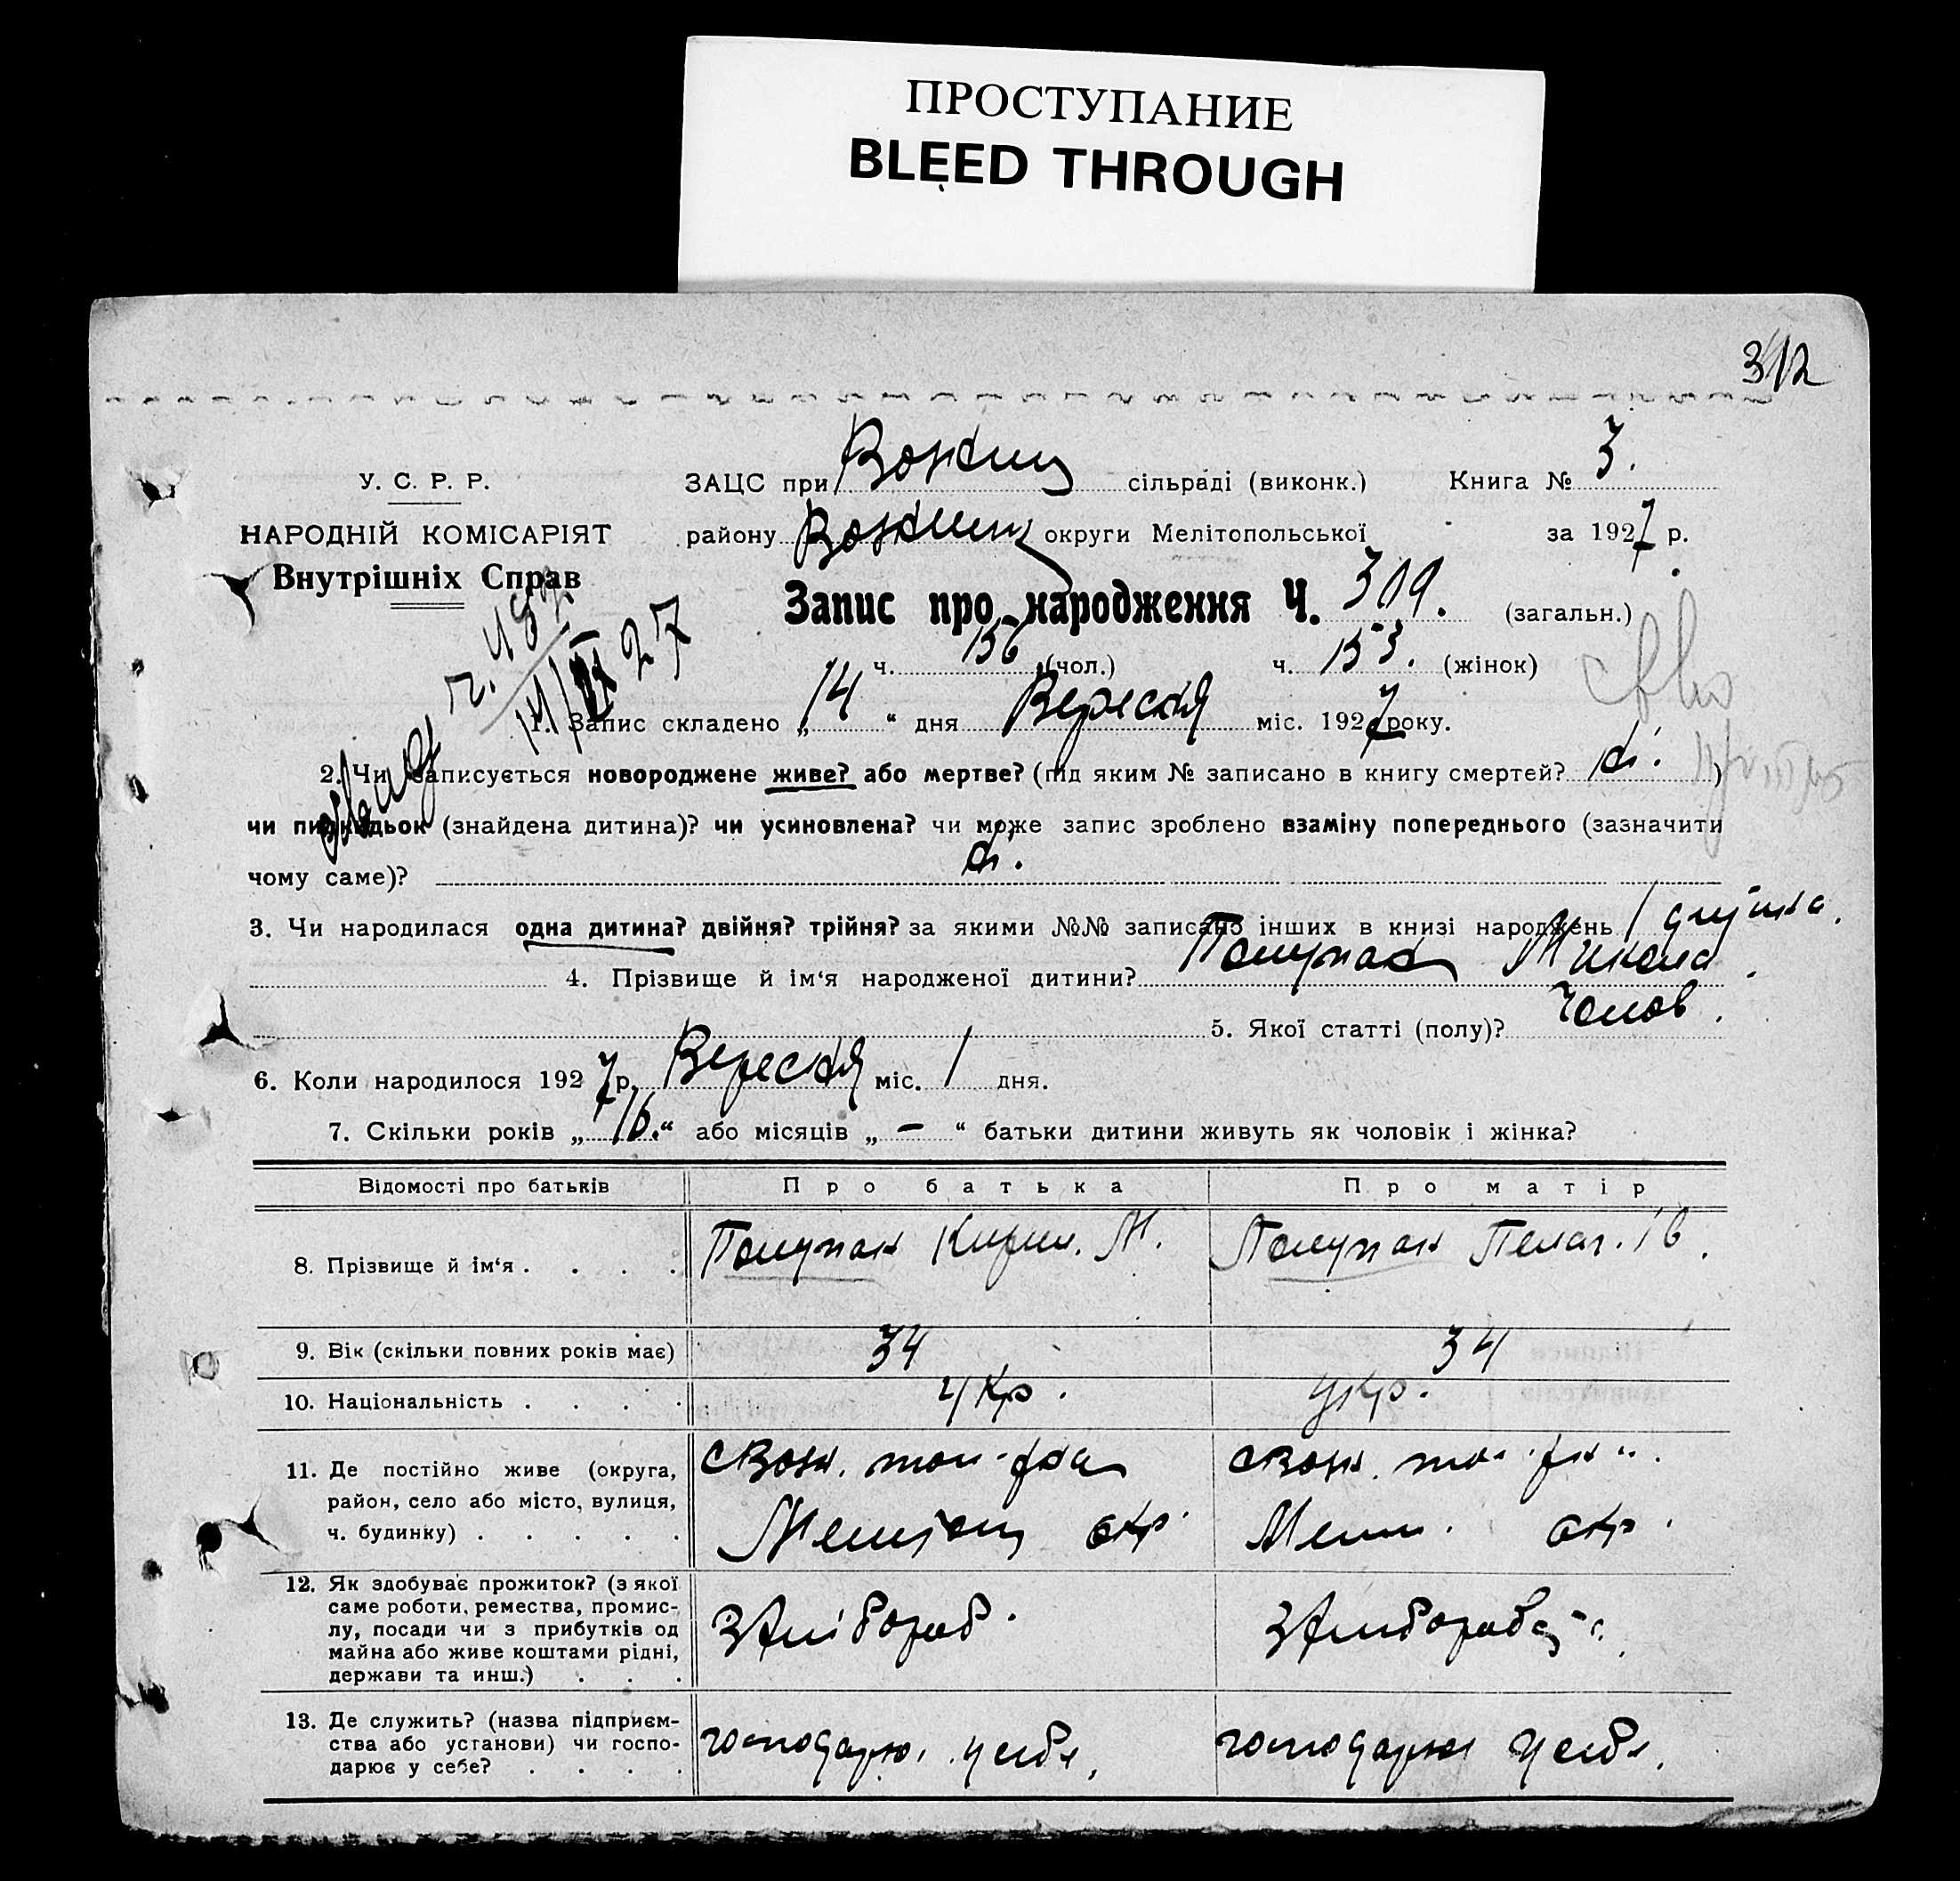 ПРОСТУПАНИЕ
BLEED THROUGH
312
У. С. Р. Р.
НАРОДНІЙ КОМІСАРІЯТ
Внутрішніх Справ
ЗАЦС при сільраді (виконк.) Книга № 3.
району округи Мелітопольської за 1927 р.
Запис про народження Ч. 309. (загальн.)
ч. 156 (чол.) ч. 153. (жінок)
1. Запис складено „ 14 “ дня Вересня міс. 1927 року.
2. Чи записується новороджене живе? або мертве? (під яким № записано в книгу смертей? )
чи підкидьок (знайдена дитина)? чи усиновлена? чи може запис зроблено взаміну попереднього (зазначити
чому саме)?
3. Чи народилася одна дитина? двійня? трійня? за якими №№ записано інших в книзі народжень 1
4. Прізвище й ім‘я народженої дитини? Полупан Микола.
5. Якої статті (полу)? Чолов.
6. Коли народилося 1927 р. Вересня міс. 1 дня.
7. Скільки років „ 16. “ або місяців „ — “ батьки дитини живуть як чоловік і жінка?
Відомості про батьків
Про батька
Про матір
8. Прізвище й ім‘я . . . .
Полупан Кирил. М.
Полупан Пелаг. Ів.
9. Вік (скільки повних років має)
34
34
10. Національність . . . .
Укр.
Укр.
11. Де постійно живе (округа,
район, село або місто, вулиця,
ч. будинку) . . . . .
окр.
окр.
12. Як здобуває прожиток? (з якої
саме роботи, ремества, промис-
лу, посади чи з прибутків од
майна або живе коштами рідні,
держави та инш.) . . .
хлібороб.
13. Де служить? (назва підприєм-
ства або установи) чи госпо-
дарює у себе? . . . .
господарює у себе.
господарює у себе.